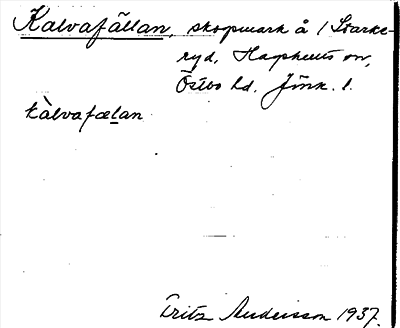 Kalvafällan, skogsmark å 1 Starke-
ryd, Hagshults sn,
Östbo hd. Jönk. l.
kàlvafælan
Fritz Andersson 1937.